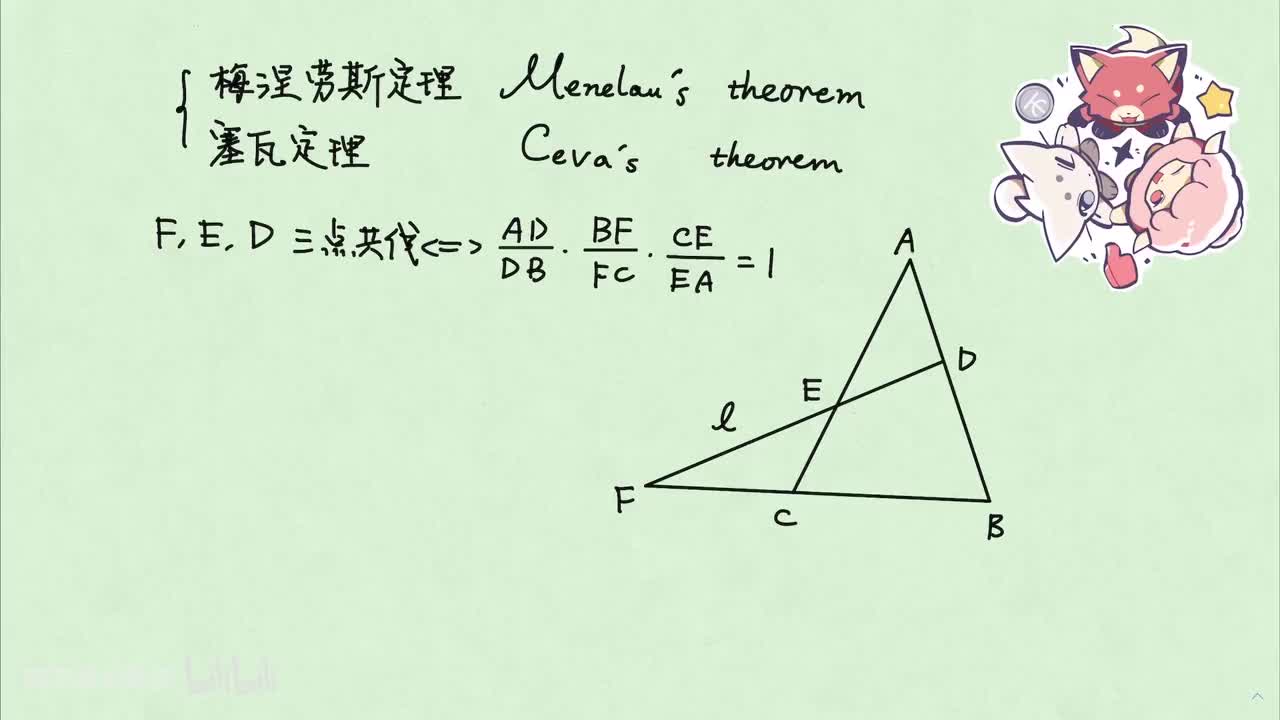 梅涅劳斯定理 Menelau's theorem
塞瓦定理 Ceva's theorem
F, E, D 三点共线 <=> AD/DB · BF/FC · CE/EA = 1
A
D
E
l
F
C
B
bilibili